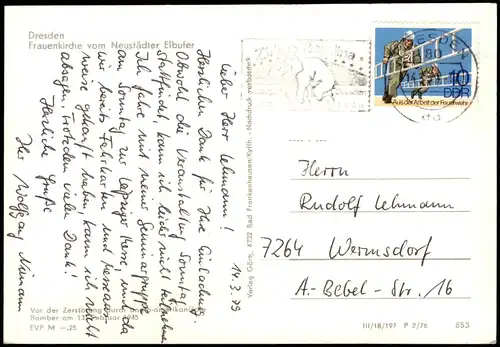 Dresden
Frauenkirche vom Neustädter Elbufer
14. 3. 79
Lieber Herr Lehmann!
Herzlichen Dank für Ihre Einladung.
Obwohl die Veranstaltung Sonntag
stattfindet, kann ich leider nicht teilnehmen.
Ich fahre mit meiner Seminargruppe
am Sonntag zur Leipziger Messe, und da
wir bereits Fahrkarten und Messeaus-
weise gekauft haben, kann ich nicht
absagen. Trotzdem vielen Dank!
Herzliche Grüße
Ihr Wolfgang
Vor der Zerstörung durch anglo-amerikanische
Bomber am 13. Februar 1945
EVP M —.25
Verlag Görn, 4732 Bad Frankenhausen/Kyffh. · Nachdruck verboten
DRESDEN
80
10
DDR
Aus der Arbeit der Feuerwehr
Herrn
Rudolf Lehmann
7264 Wermsdorf
A.-Bebel-Str. 16
III/18/197 P 2/76
853